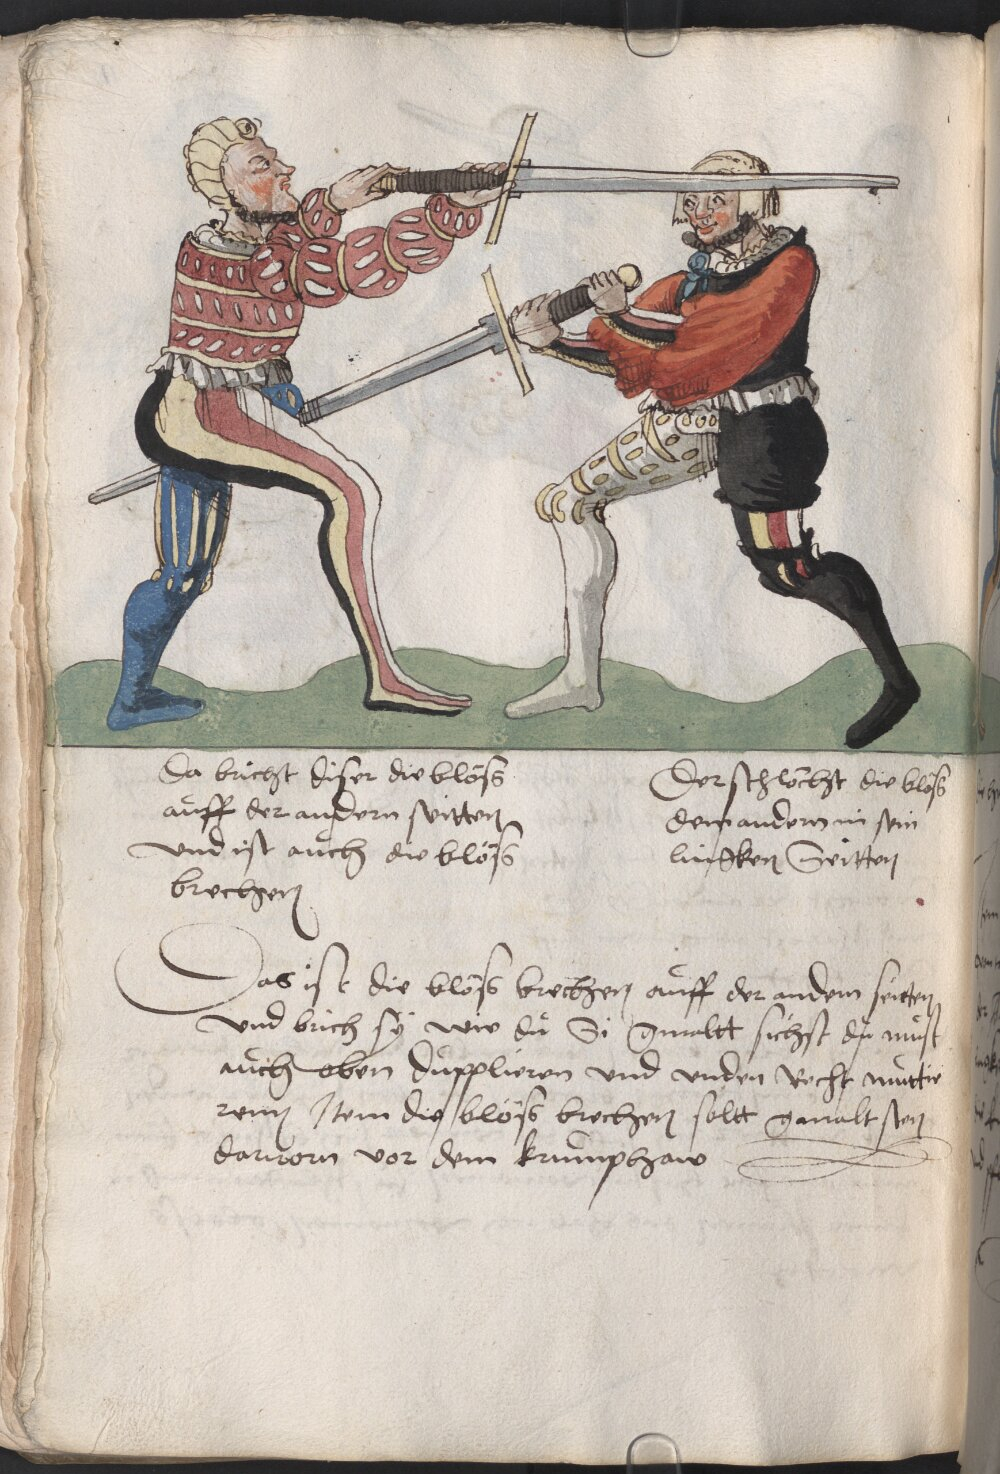 Da bricht diser die blöss
auff der andern seitten
und ist auch die blöss
brechen
Der schlöcht die blöss
dem andern in sein
lincken Seitten
Das ist die blöss brechen auff der andern seitten
und brich sy wie du Si gmaltt sichst du müst
auch oben dupplieren und unden Recht muttie
renn Item die blöss brechen soltt gmalt sten
darvorn vor dem krumphaw